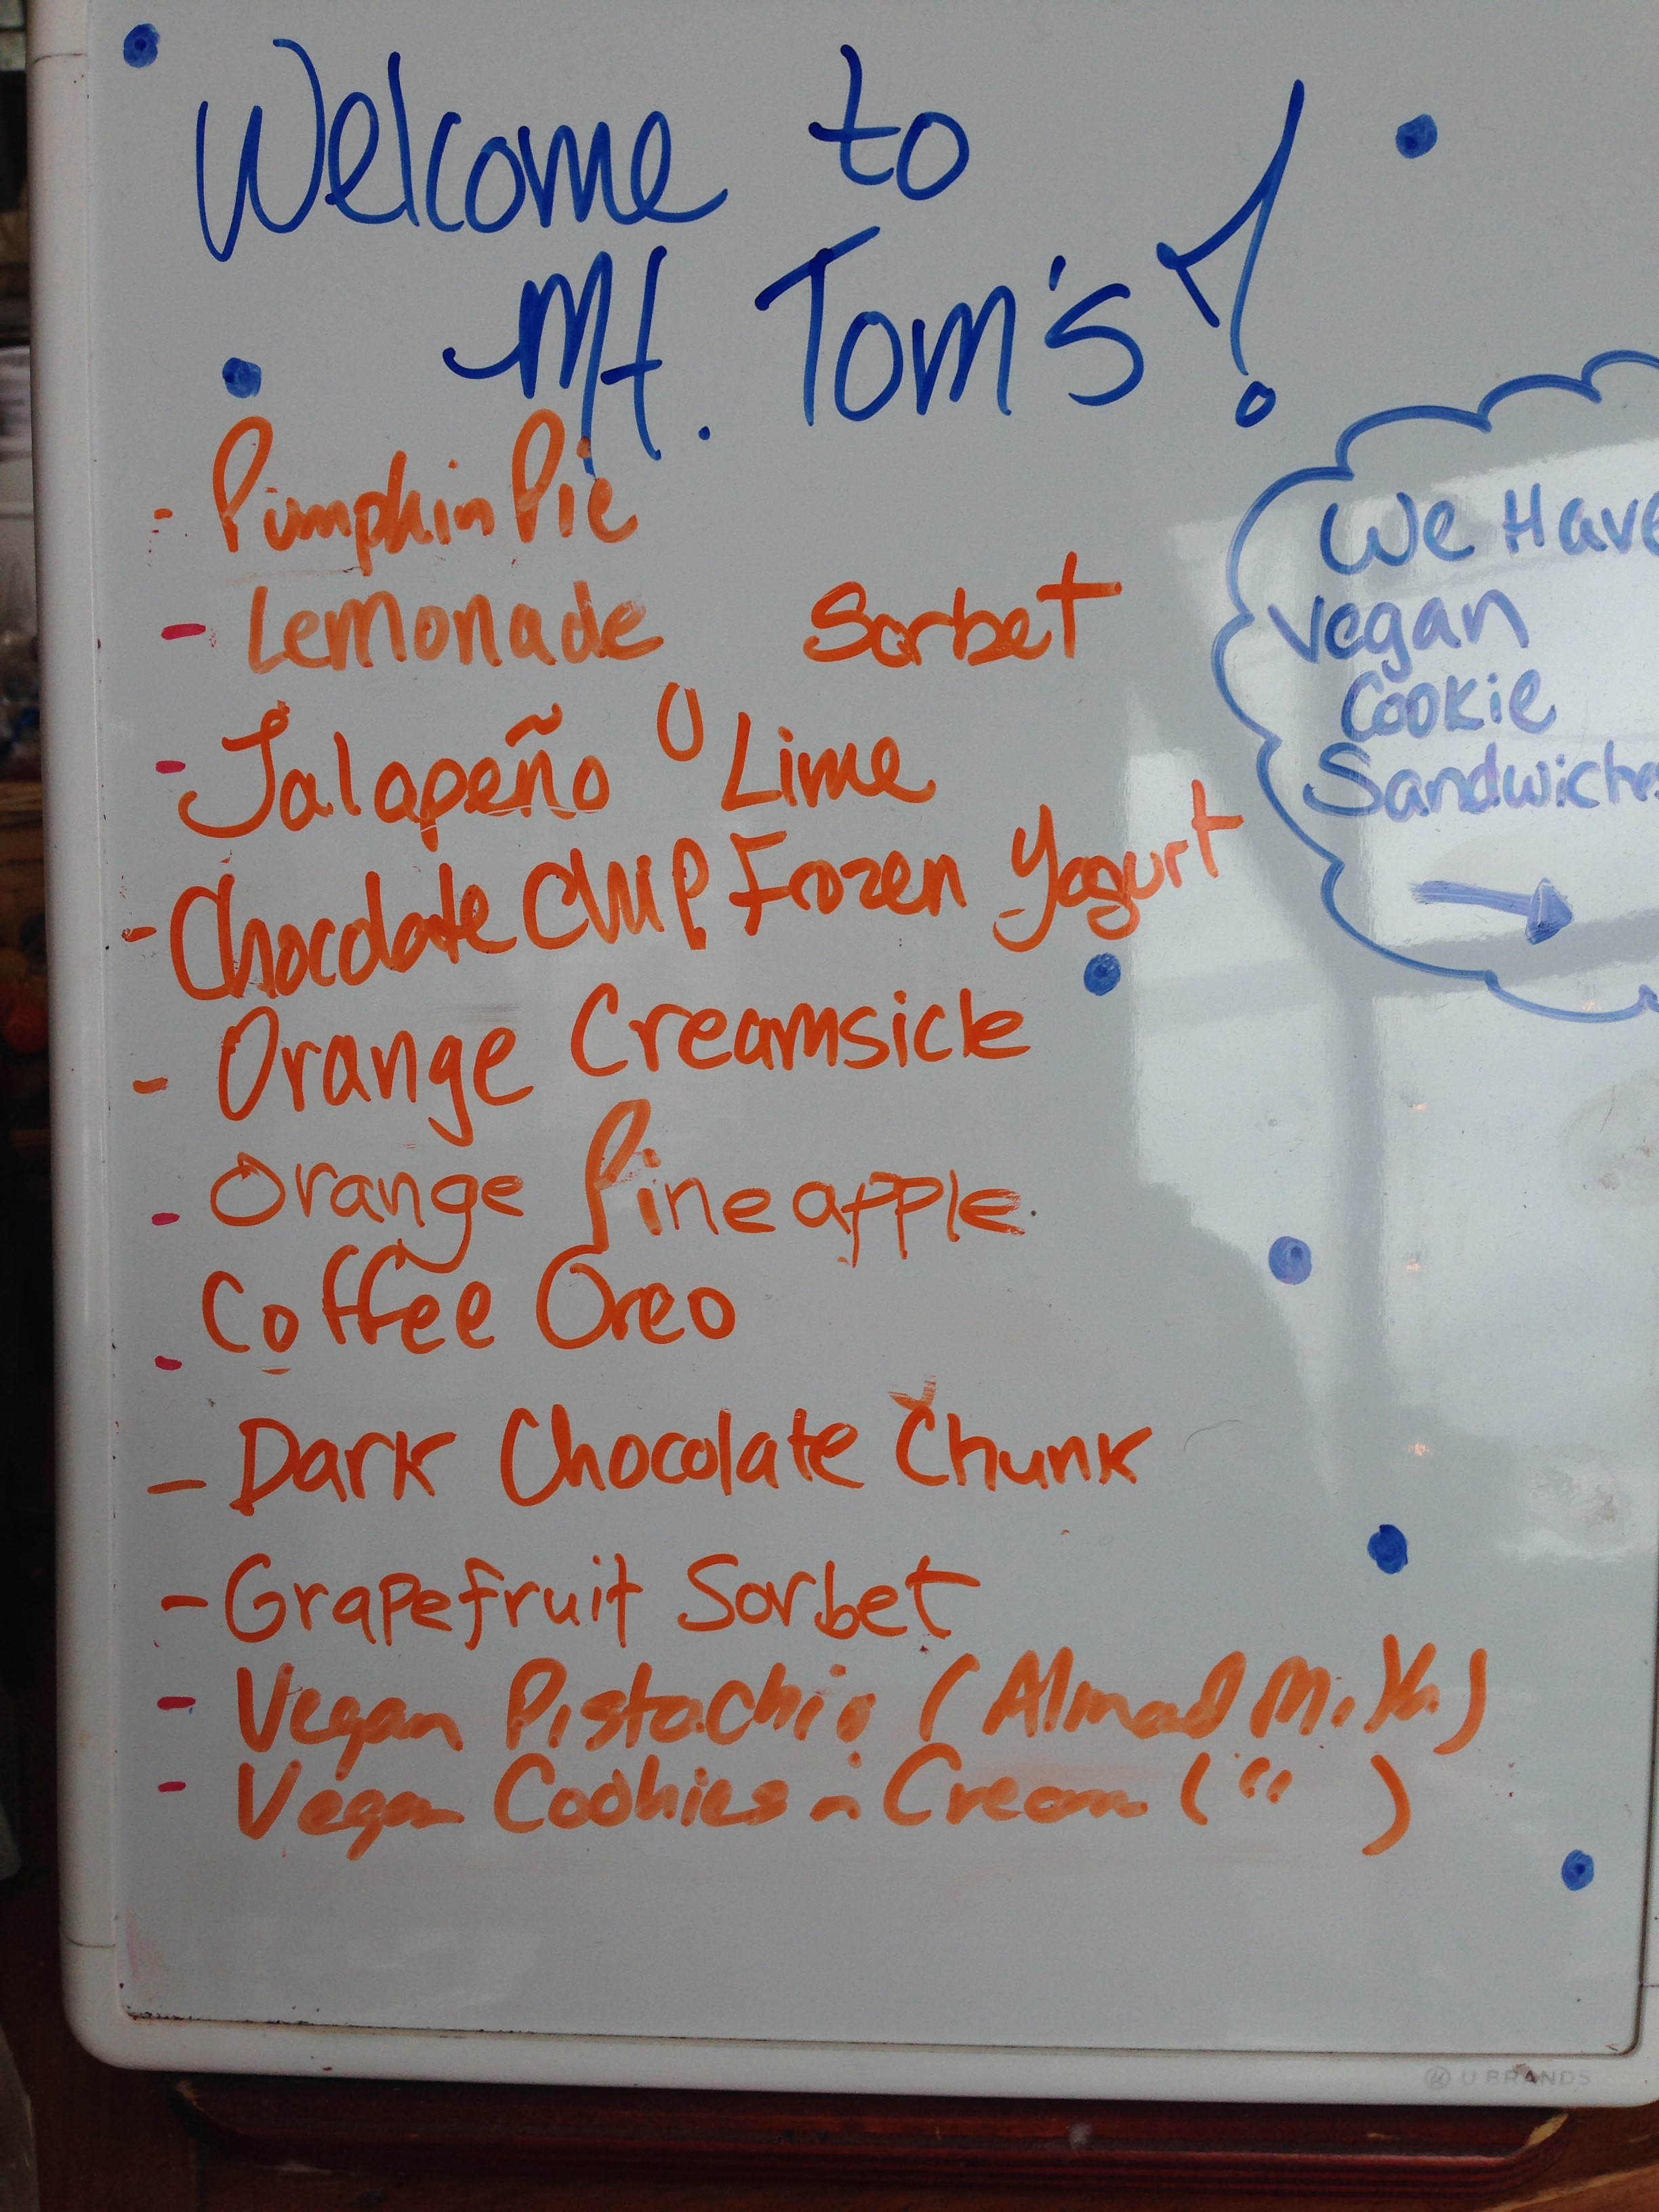 Welcome to
Mt. Tom's!
- Pumpkin Pie
- Lemonade Sorbet
- Jalapeño Lime
- Chocolate Chip Frozen Yogurt
- Orange Creamsicle
- Orange Pineapple
- Coffee Oreo
- Dark Chocolate Chunk
- Grapefruit Sorbet
- Vegan Pistachio (Almond Milk)
- Vegan Cookies n Cream (")
We Have
Vegan
Cookie
Sandwiches
U BRANDS